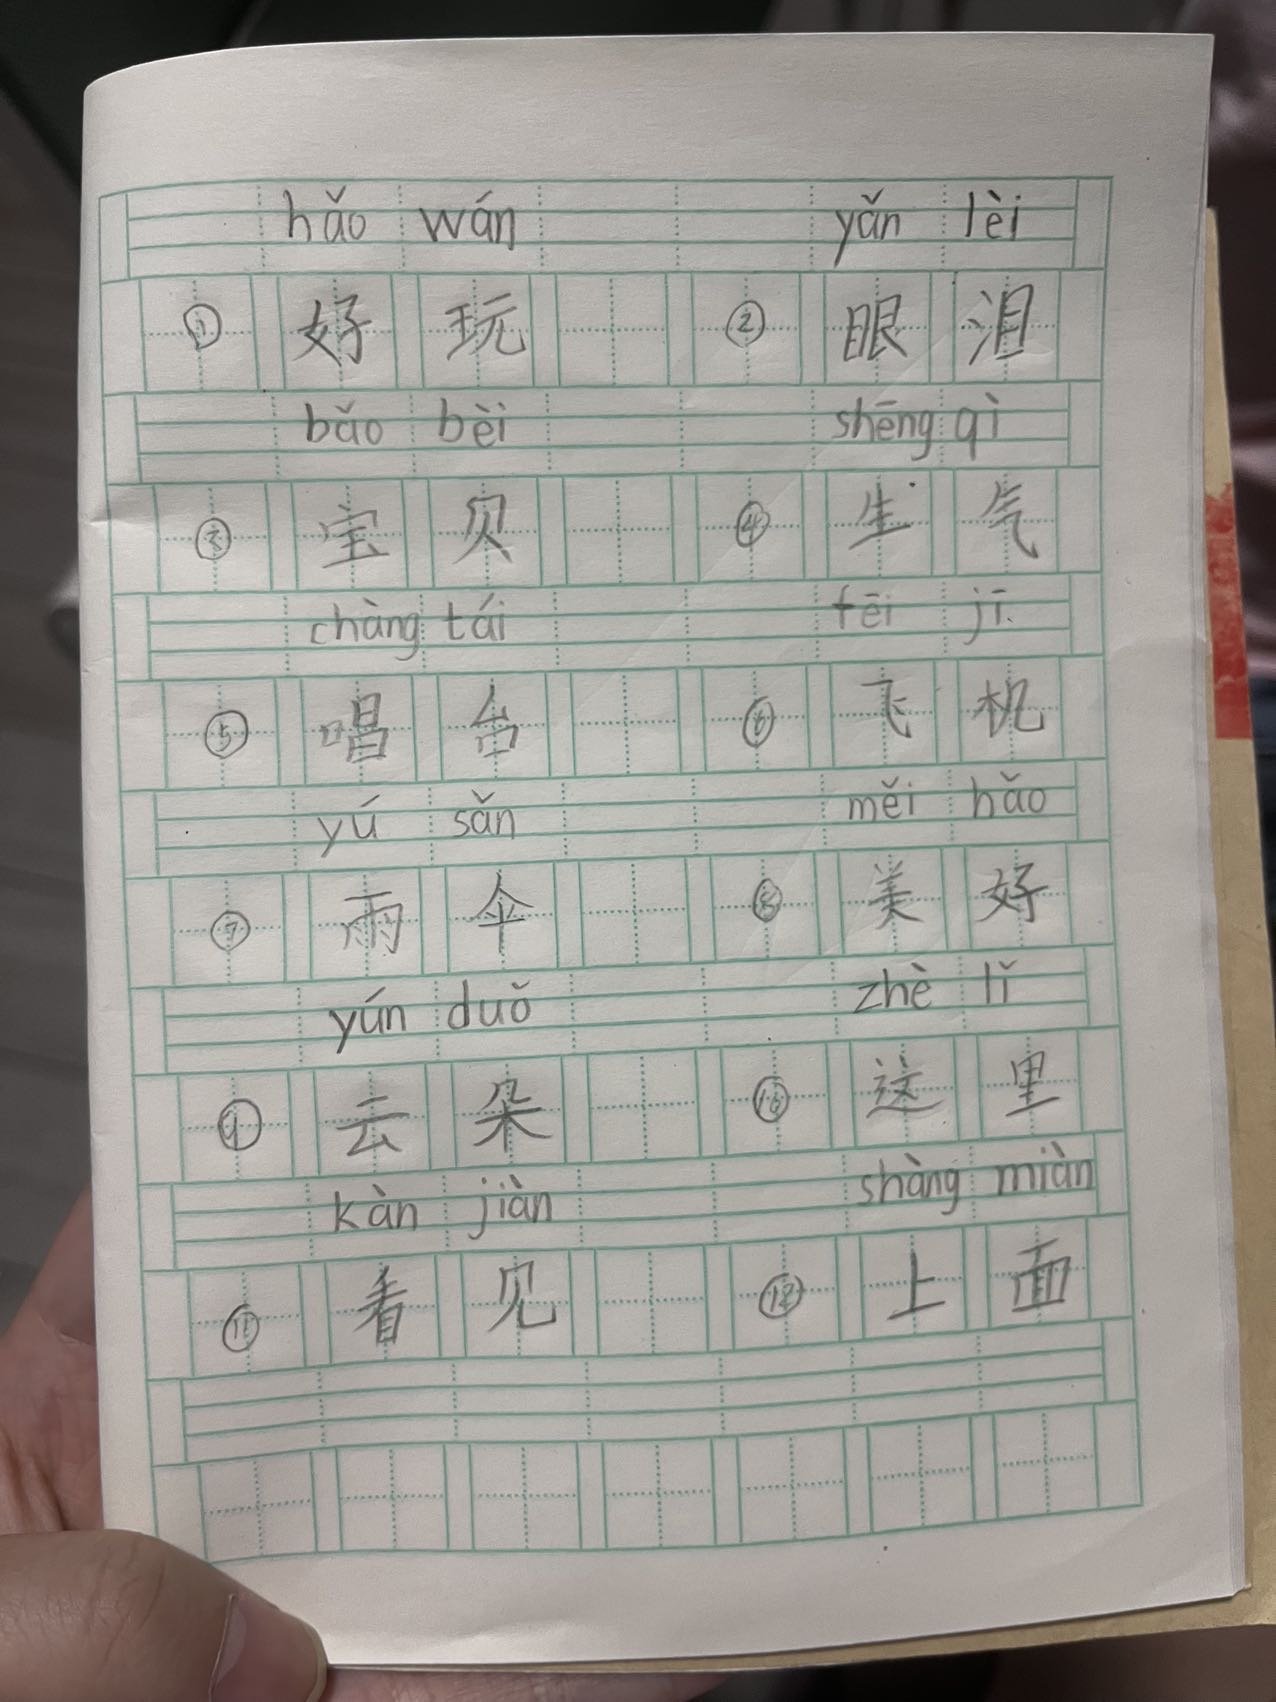 hǎo wán yǎn lèi
① 好玩 ② 眼泪
bǎo bèi shēng qì
③ 宝贝 ④ 生气
chàng tái fēi jī
⑤ 唱台 ⑥ 飞机
yú sǎn měi hǎo
⑦ 雨伞 ⑧ 美好
yún duǒ zhè lǐ
⑨ 云朵 ⑩ 这里
kàn jiàn shàng miàn
⑪ 看见 ⑫ 上面